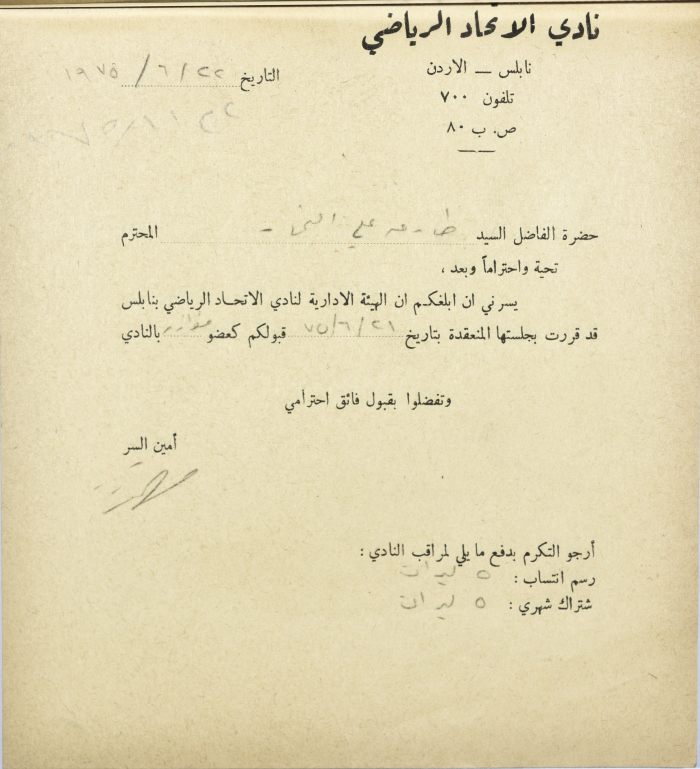 نادي الاتحاد الرياضي
نابلس — الاردن
تلفون ٧٠٠
ص. ب ٨٠
التاريخ ٢٢ / ٦ / ١٩٧٥
حضرة الفاضل السيد علي المحترم
تحية واحتراماً وبعد ،
يسرني ان ابلغكم ان الهيئة الادارية لنادي الاتحاد الرياضي بنابلس
قد قررت بجلستها المنعقدة بتاريخ ٢١ / ٦ / ٧٥ قبولكم كعضو مؤازر بالنادي
وتفضلوا بقبول فائق احترامي
أمين السر
أرجو التكرم بدفع ما يلي لمراقب النادي :
رسم انتساب : ٥ ليرات
شتراك شهري : ٥ ليرات